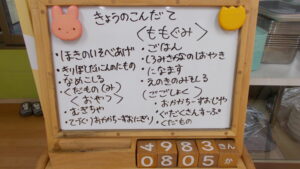 きょうのこんだて
<ももぐみ>
・ほきのいそべあげ
・きりぼしだいこんのにもの
・なめこしる
・くだもの(み)
<おやつ>
・むぎちゃ
・てづくりおかかチーズおにぎり
・ごはん
・しろみざかなのおやき
・になます
・えのきのみそしる
<ごごしょく>
・おかかチーズおじや
・ぐだくさんすーぷ
・くだもの
4 9 8 3 さん
0 8 0 5 か